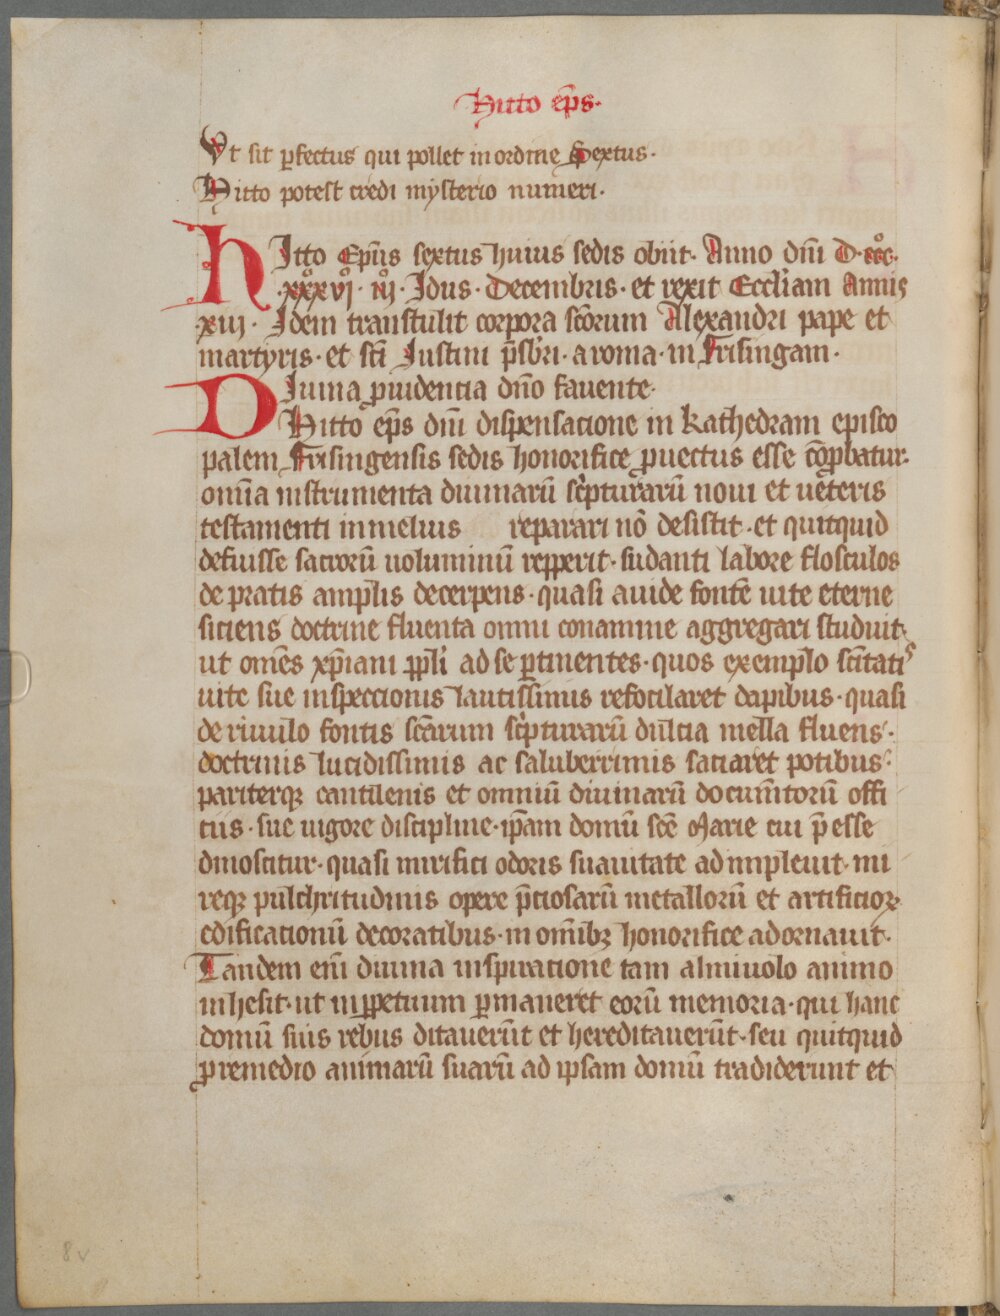 Hitto ep̄s·
Vt sit ꝑfectus qui pollet in ordine Sextus·
Hitto potest credi mysterio numeri·
HItto Ep̄us sextus huius sedis obiit· Anno dn̄i D·ccc͛·
·xxxvj· iij· Idus· Decembris· et rexit Eccl̄iam Annis
xiij· Idem transtulit corpora sc̄orum Alexandri pape et
martyris· et sc̄i Iustini p̄sbr̄i· a roma· in Frisingam·
DIuina ꝓuidencia dn̄o fauente·
Hitto ep̄s dn̄i dispensacione in kathedram episco
palem Frisingensis sedis honorifice ꝓuectus esse cōꝓbatur·
om̄ia instrumenta diuinarū sc̄pturarū noui et ueteris
testamenti in melius reparari nō desistit· et quitquid
defuisse sacrorū uoluminū repperit· sudanti labore flosculos
de pratis amplis decerpens· quasi auide fontē uite eterne
siciens doctrine fluenta omni conamine aggregari studuit·
ut om̄es xp̄iani ppl̄i ad se ꝑtinentes· quos exemplo sc̄itatis
uite sue inspeccionis lautissimis refocilaret dapibus· quasi
de riuulo fontis sc̄arum sc̄pturarū dulcia mella fluens·
doctrinis lucidissimis ac saluberrimis saciaret potibus·
pariterqꝫ cantilenis et omniū diuinarū documn̄torū offi
ciis· sue uigore discipline· ip̄am domū sc̄e Marie cui p̄esse
dinoscitur· quasi mirifici odoris suauitate adimpleuit· mi
reqꝫ pulchritudinis opere p̄ciosarū metallorū et artificioꝝ
edificacionū decoratibus· in om̄ibꝫ honorifice adornauit·
Tandem em̄ diuina inspiracione tam almiuolo animo
inhesit· ut in ꝑpetuum ꝑmaneret eorū memoria· qui hanc
domū suis rebus ditauerūt et hereditauerūt· seu quitquid
ꝓ remedio animarū suarū ad ipsam domū tradiderunt et
8v